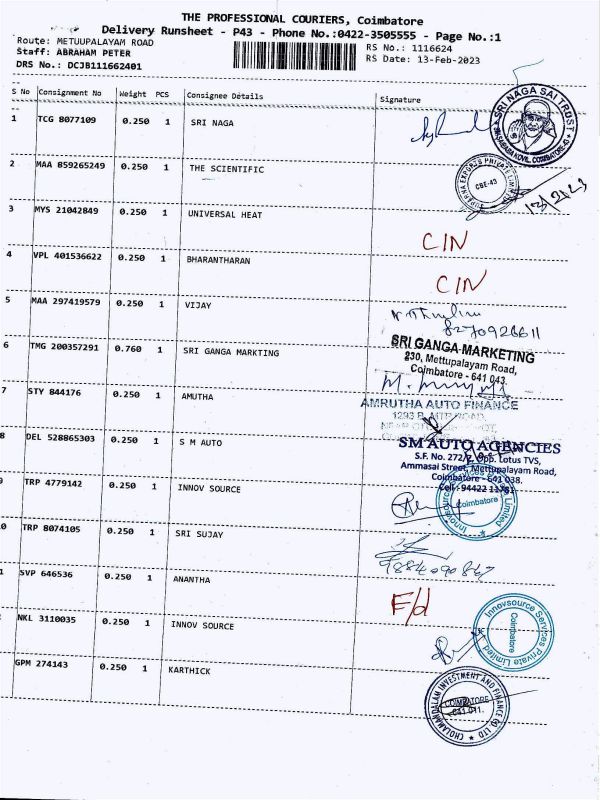 THE PROFESSIONAL COURIERS, Coimbatore
Delivery Runsheet - P43 - Phone No.:0422-3505555 - Page No.:1
Route: METUUPALAYAM ROAD
Staff: ABRAHAM PETER
DRS No.: DCJB111662401
RS No.: 1116624
RS Date: 13-Feb-2023
S No Consignment No Weight PCS Consignee Details Signature
1 TCG 8077109 0.250 1 SRI NAGA
SRI NAGA SAI TRUST
2 MAA 859265249 0.250 1 THE SCIENTIFIC
CBE-43
3 MYS 21042849 0.250 1 UNIVERSAL HEAT CIN
4 VPL 401536622 0.250 1 BHARANTHARAN CIN
5 MAA 297419579 0.250 1 VIJAY
8270926611
6 TMG 200357291 0.760 1 SRI GANGA MARKTING
SRI GANGA MARKETING
230, Mettupalayam Road,
Coimbatore - 641 043.
7 STY 844176 0.250 1 AMUTHA
AMRUTHA AUTO FINANCE
8 DEL 528865303 0.250 1 S M AUTO
SM AUTO AGENCIES
S.F. No. 272/2, Opp. Lotus TVS,
Ammasai Street, Mettupalayam Road,
Coimbatore - 641 038.
TRP 4779142 0.250 1 INNOV SOURCE
Innovsource Services Private Limited
Coimbatore
0 TRP 8074105 0.250 1 SRI SUJAY
1 SVP 646536 0.250 1 ANANTHA
F/d
NKL 3110035 0.250 1 INNOV SOURCE
Innovsource Services Private Limited
Coimbatore
GPM 274143 0.250 1 KARTHICK
CHOLAMANDALAM INVESTMENT AND FINANCE CO LTD
COIMBATORE
641 011.